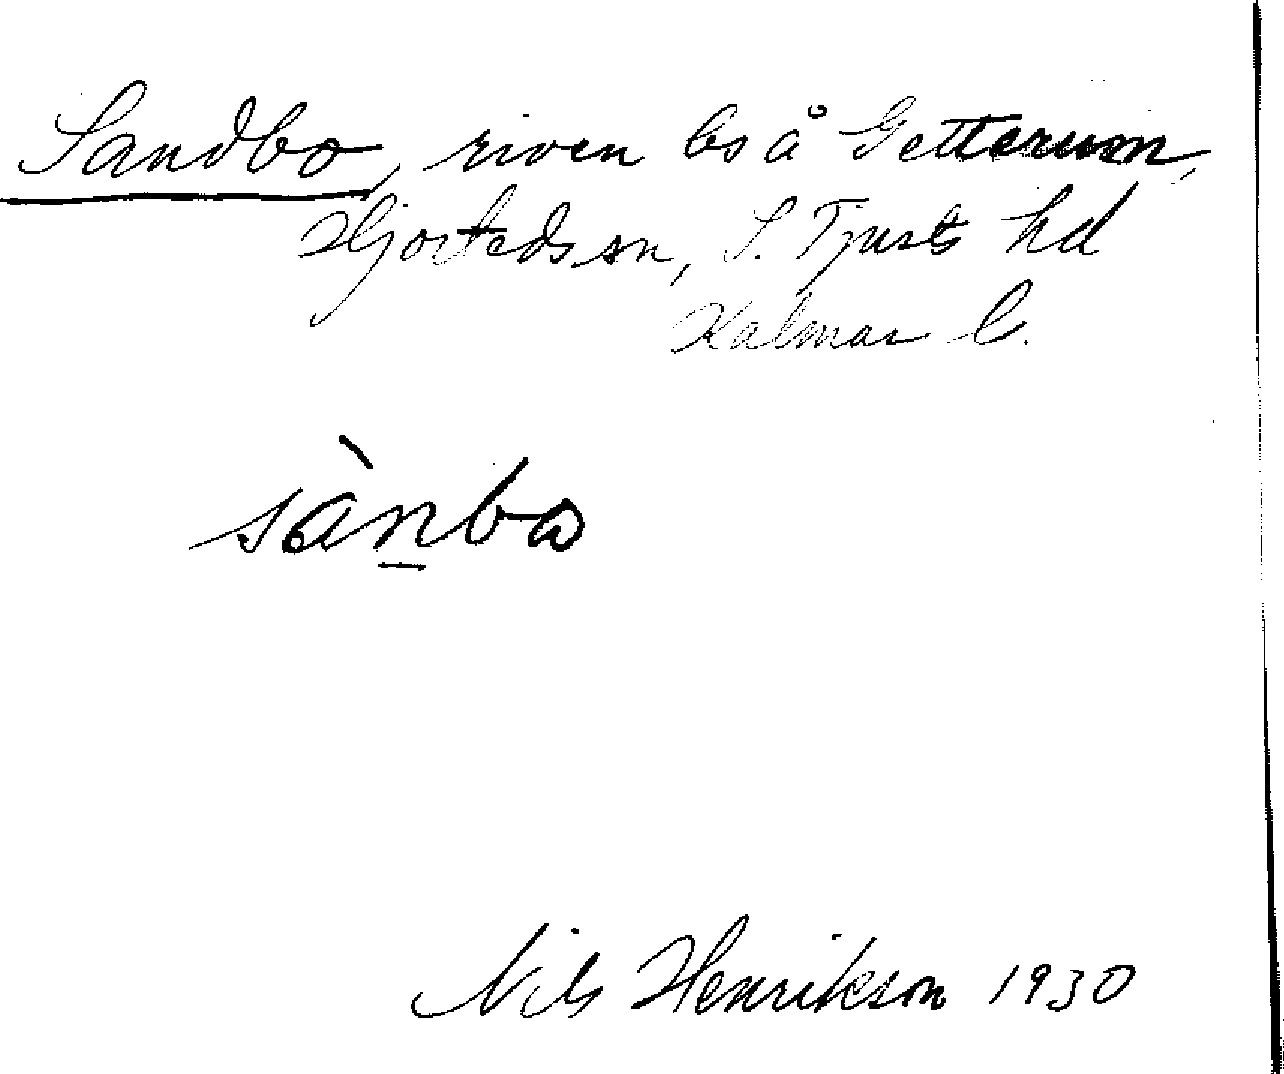 Sandbo, riven bs å Getterum,
Hjorteds sn, S. Tjusts hd
Kalmar l.
sànbo
Nils Henrikson 1930